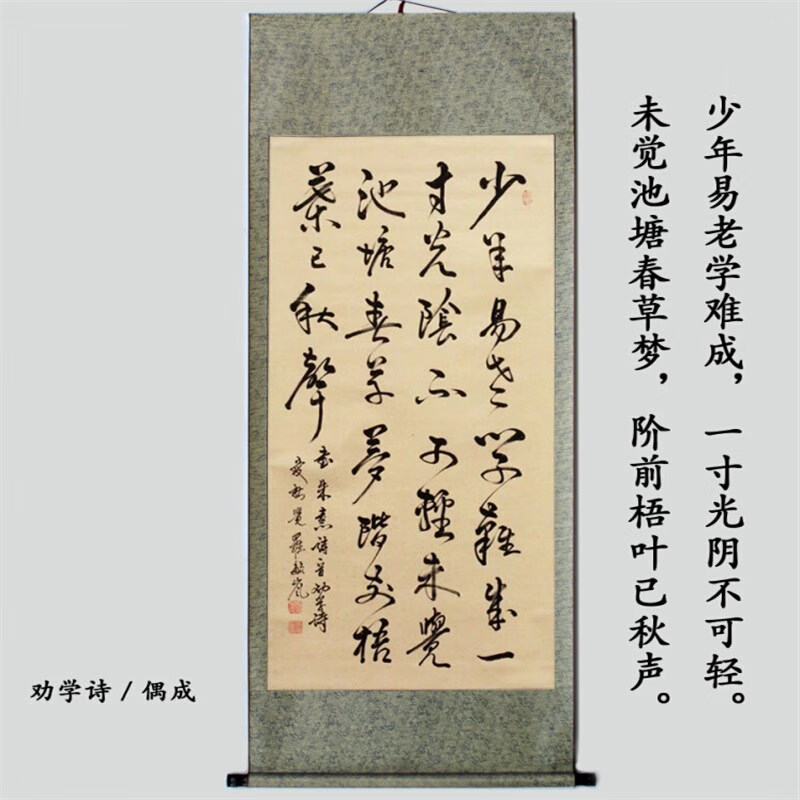 少年易老学难成，一寸光阴不可轻。
未觉池塘春草梦，阶前梧叶已秋声。
少年易老學難成一
寸光陰不可輕未覺
池塘春草夢階前梧
葉已秋聲
劝学诗 / 偶成